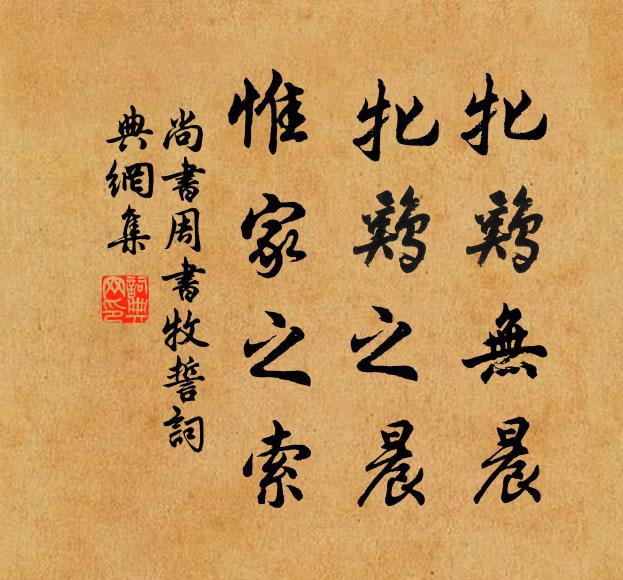 牝鷄無晨
牝鷄之晨
惟家之索
尚書周書牧誓詞
典網集
詞典
网印